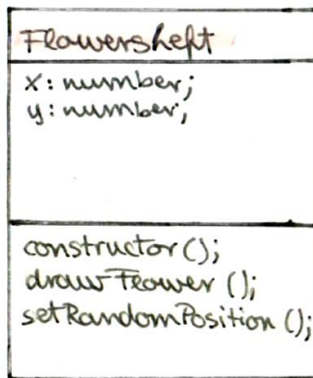 Flowersheft
x: number;
y: number;
constructor();
drawFlower();
setRandomPosition();